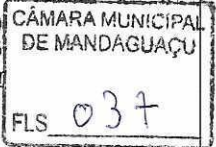 CÂMARA MUNICIPAL
DE MANDAGUAÇU
FLS 037